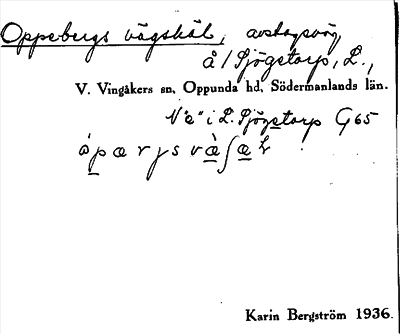 Oppebergs vägskäl, avstagsväg
å/Sjögstorp, L.,
V. Vingåkers sn, Oppunda hd, Södermanlands län.
N "a" i L. Sjögstorp G 65
Karin Bergström 1936.